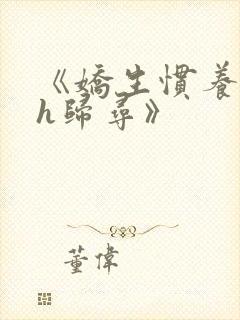 《嬌生慣養
h歸尋》
董偉